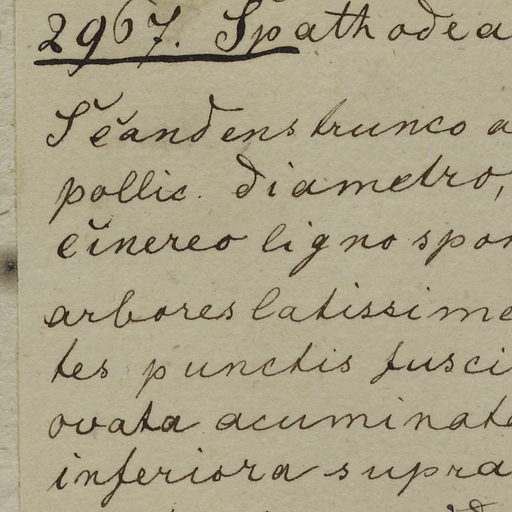 2967. Spathodea
Scandens trunco
pollic. diametro,
cinereo ligno spon
arbores latissime
tes punctis fusci
ovata acuminata
inferiora supra